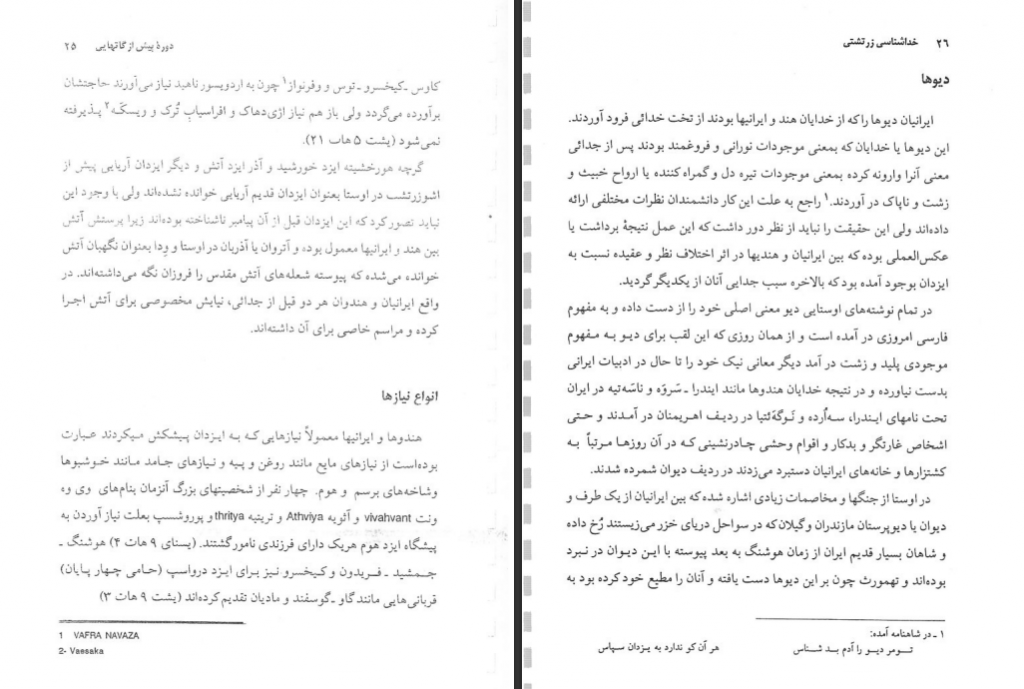 دورهٔ پیش از گاتهایی ۲۵
کاوس ـ کیخسرو ـ توس و وفرنواز۱ چون به اردویسور ناهید نیاز می‌آورند حاجتشان
برآورده می‌گردد ولی باز هم نیاز اژی‌دهاک و افراسیابِ تُرک و ویسکَه۲ پذیرفته
نمی‌شود (یشت ۵ هات ۲۱).
گرچه هورخشیته ایزد خورشید و آذر ایزد آتش و دیگر ایزدان آریایی پیش از
اشوزرتشت در اوستا بعنوان ایزدان قدیم آریایی خوانده نشده‌اند ولی با وجود این
نباید تصور کرد که این ایزدان قبل از آن پیامبر ناشناخته بوده‌اند زیرا پرستش آتش
بین هند و ایرانیها معمول بوده و آتروان یا آذربان در اوستا و ودا بعنوان نگهبان آتش
خوانده می‌شده که پیوسته شعله‌های آتش مقدس را فروزان نگه می‌داشته‌اند. در
واقع ایرانیان و هندوان هر دو قبل از جدائی، نیایش مخصوصی برای آتش اجرا
کرده و مراسم خاصی برای آن داشته‌اند.
انواع نیازها
هندوها و ایرانیها معمولاً نیازهایی که به ایزدان پیشکش میکردند عبارت
بوده‌است از نیازهای مایع مانند روغن و پیه و نیازهای جامد مانند خوشبوها
وشاخه‌های برسم و هوم. چهار نفر از شخصیتهای بزرگ آنزمان بنام‌های وی وه
ونت vivahvant و آثویه Athviya و تریتیه thritya و پوروشسپ بعلت نیاز آوردن به
پیشگاه ایزد هوم هریک دارای فرزندی نامور گشتند. (یسنای ۹ هات ۴) هوشنگ ـ
جمشید ـ فریدون و کیخسرو نیز برای ایزد درواسپ (حامی چهار پایان)
قربانی‌هایی مانند گاو ـ گوسفند و مادیان تقدیم کرده‌اند (یشت ۹ هات ۳)
1 VAFRA NAVAZA
2- Vaesaka
۲۶ خداشناسی زرتشتی
دیوها
ایرانیان دیوها را که از خدایان هند و ایرانیها بودند از تخت خدائی فرود آوردند.
این دیوها یا خدایان که بمعنی موجودات نورانی و فروغمند بودند پس از جدائی
معنی آنرا وارونه کرده بمعنی موجودات تیره دل و گمراه کننده یا ارواح خبیث و
زشت و ناپاک در آوردند.۱ راجع به علت این کار دانشمندان نظرات مختلفی ارائه
داده‌اند ولی این حقیقت را نباید از نظر دور داشت که این عمل نتیجهٔ برداشت یا
عکس‌العملی بوده که بین ایرانیان و هندیها در اثر اختلاف نظر و عقیده نسبت به
ایزدان بوجود آمده بود که بالاخره سبب جدایی آنان از یکدیگر گردید.
در تمام نوشته‌های اوستایی دیو معنی اصلی خود را از دست داده و به مفهوم
فارسی امروزی در آمده است و از همان روزی که این لقب برای دیو به مفهوم
موجودی پلید و زشت در آمد دیگر معانی نیک خود را تا حال در ادبیات ایرانی
بدست نیاورده و در نتیجه خدایان هندوها مانند ایندرا ـ سَروَه و ناسَه‌تیه در ایران
تحت نامهای ایندرا، سه‌اُرده و نَوگهَ‌ئتیا در ردیف اهریمنان در آمدند و حتی
اشخاص غارتگر و بدکار و اقوام وحشی چادرنشینی که در آن روزها مرتباً به
کشتزارها و خانه‌های ایرانیان دستبرد می‌زدند در ردیف دیوان شمرده شدند.
در اوستا از جنگها و مخاصمات زیادی اشاره شده که بین ایرانیان از یک طرف و
دیوان یا دیوپرستان مازندران و گیلان که در سواحل دریای خزر می‌زیستند رُخ داده
و شاهان بسیار قدیم ایران از زمان هوشنگ به بعد پیوسته با این دیوان در نبرد
بوده‌اند و تهمورث چون بر این دیوها دست یافته و آنان را مطیع خود کرده بود به
۱ ـ در شاهنامه آمده:
تو مر دیو را آدم بد شناس هر آن کو ندارد به یزدان سپاس